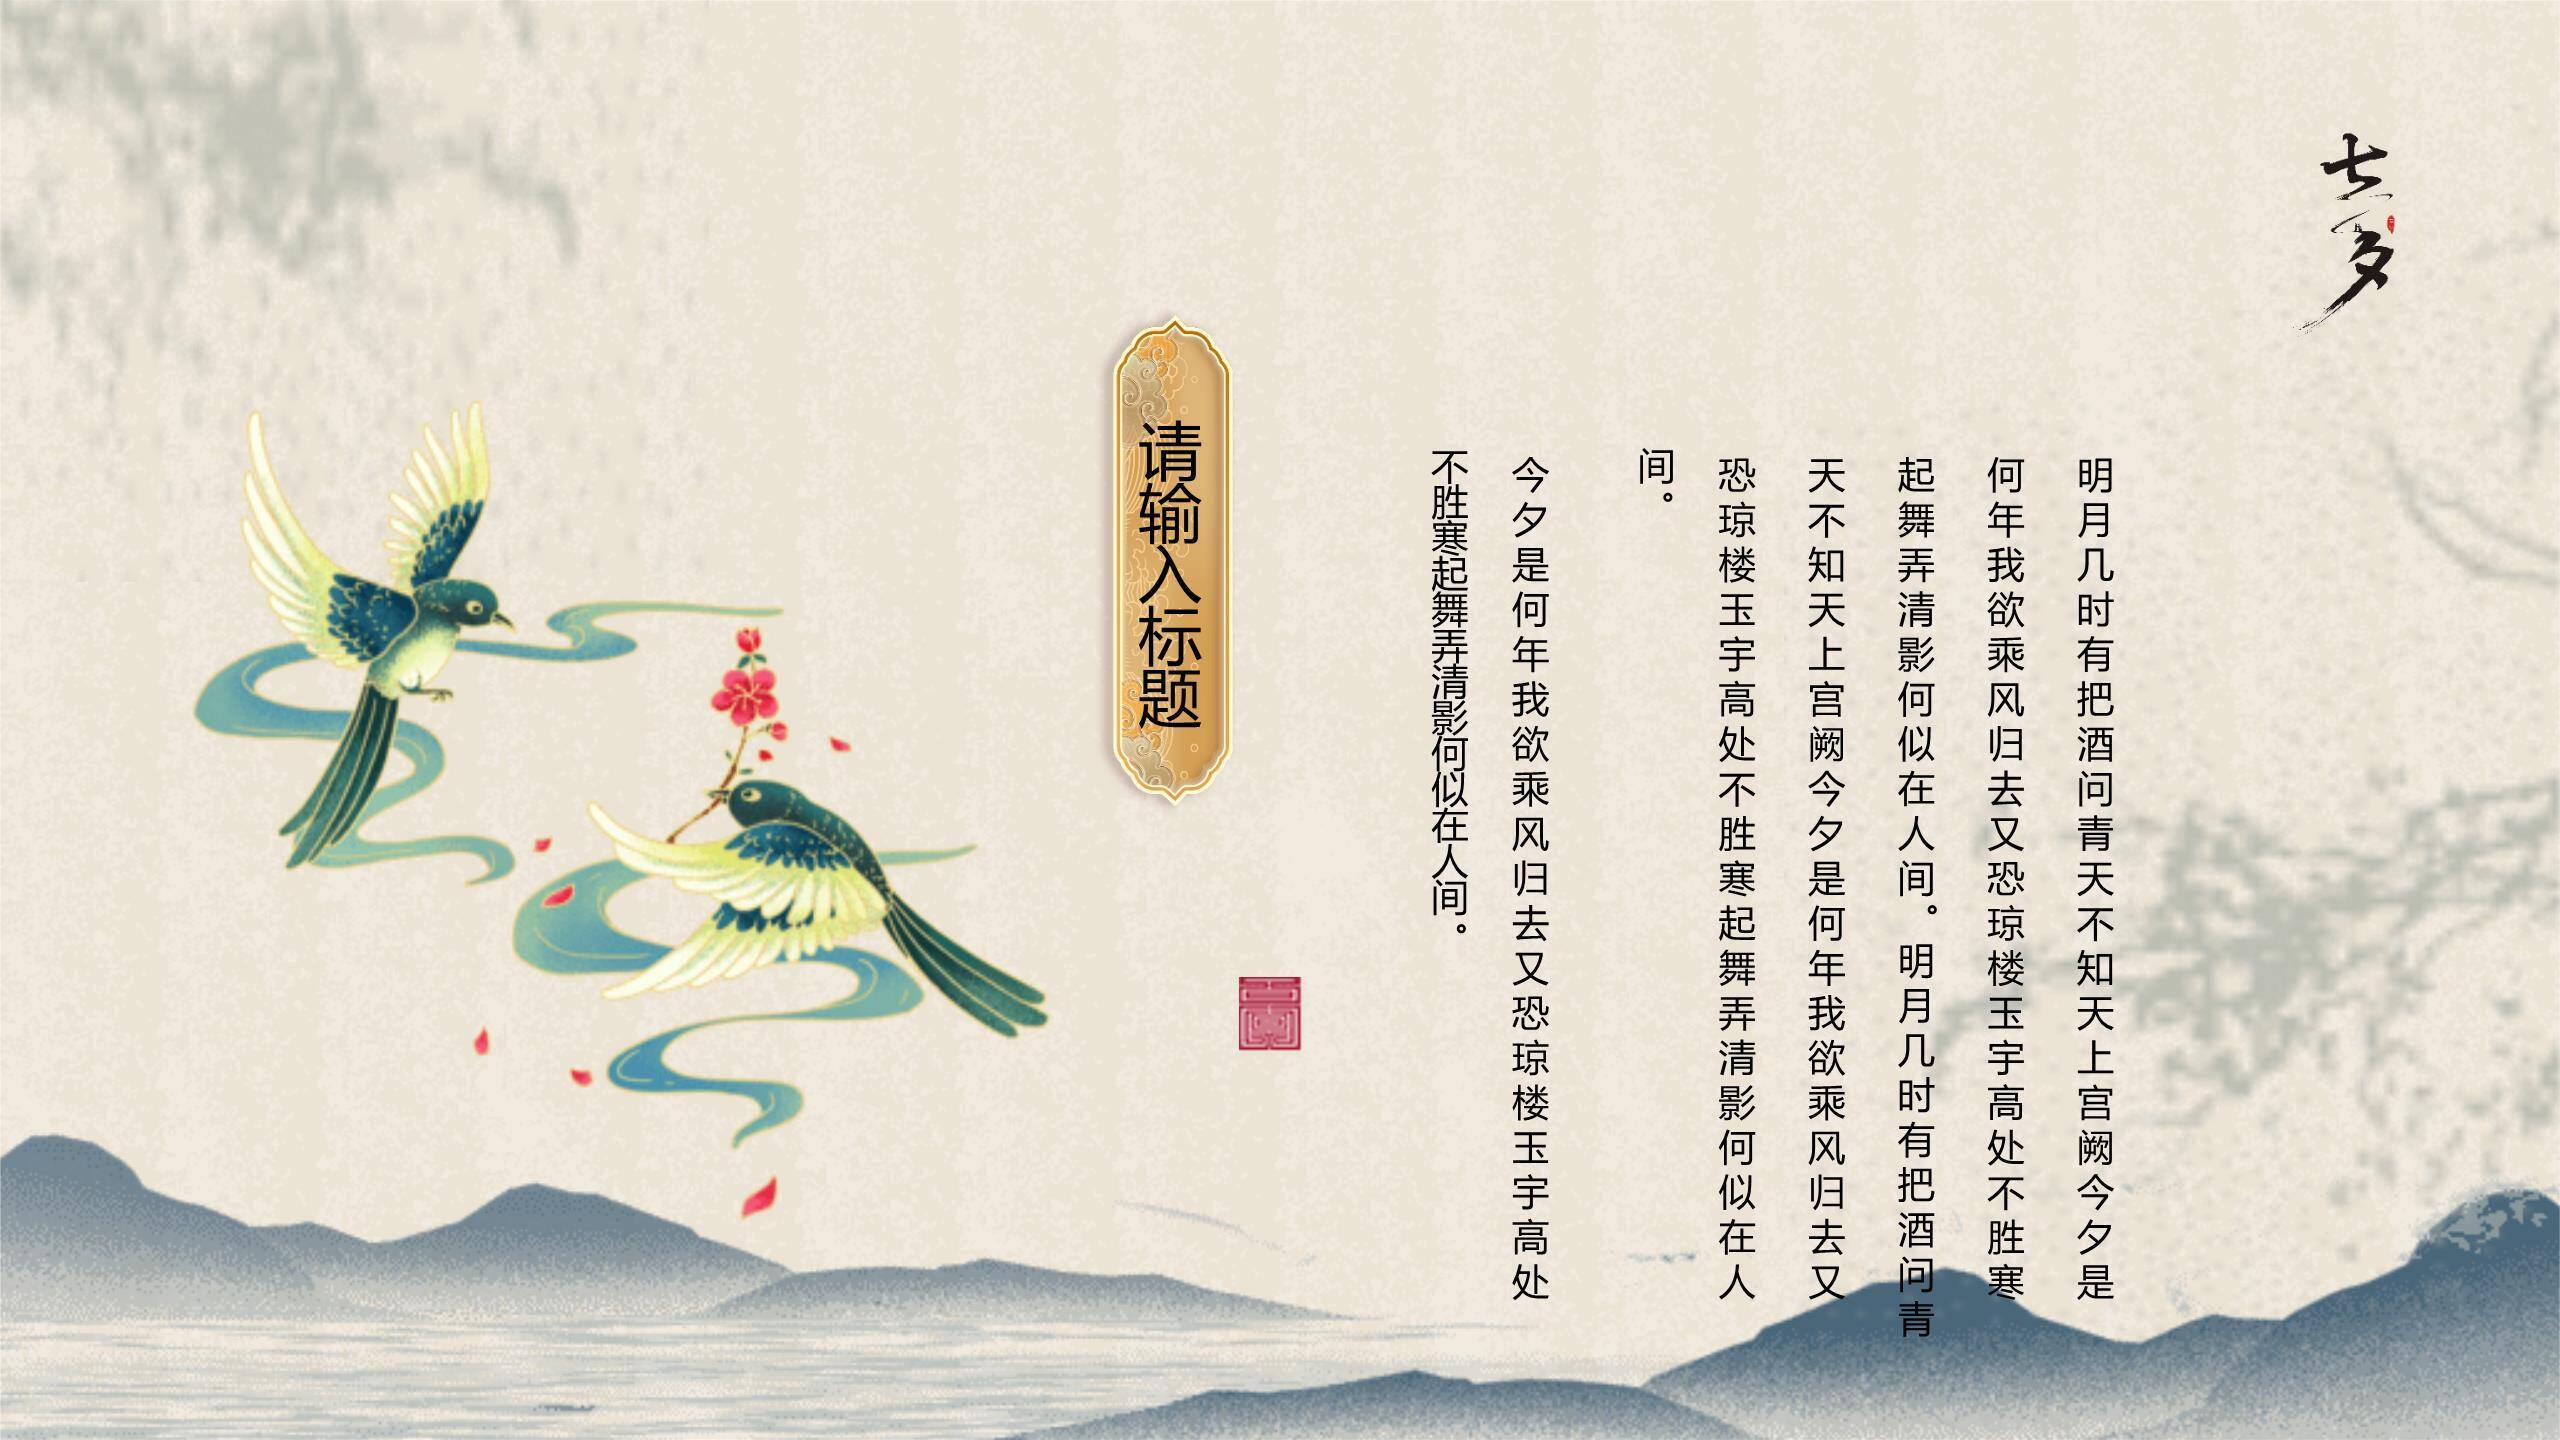 七夕
明月几时有把酒问青天不知天上宫阙今夕是
何年我欲乘风归去又恐琼楼玉宇高处不胜寒
起舞弄清影何似在人间。明月几时有把酒问青
天不知天上宫阙今夕是何年我欲乘风归去又
恐琼楼玉宇高处不胜寒起舞弄清影何似在人
间。
今夕是何年我欲乘风归去又恐琼楼玉宇高处
不胜寒起舞弄清影何似在人间。
请输入标题